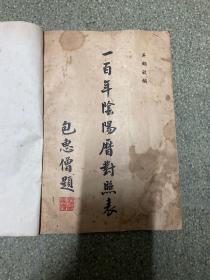 一百年陰陽曆對照表
包惠僧題